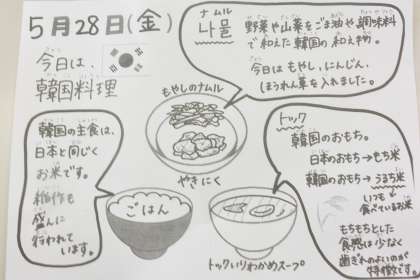 5月28日(金)
今日は、
韓国料理
ナムル
나물
野菜や山菜をごま油や調味料
で和えた韓国の和え物。
今日はもやし、にんじん、
ほうれん草を入れました。
もやしのナムル
やきにく
韓国の主食は、
日本と同じく
お米です。
稲作も
盛んに
行われて
います。
ごはん
トックいりわかめスープ
トック
韓国のおもち。
日本のおもち→もち米
韓国のおもち→うるち米
いつも
食べているお米
もちもちとした
食感は少なく
歯ぎれのよいのが
特徴です。